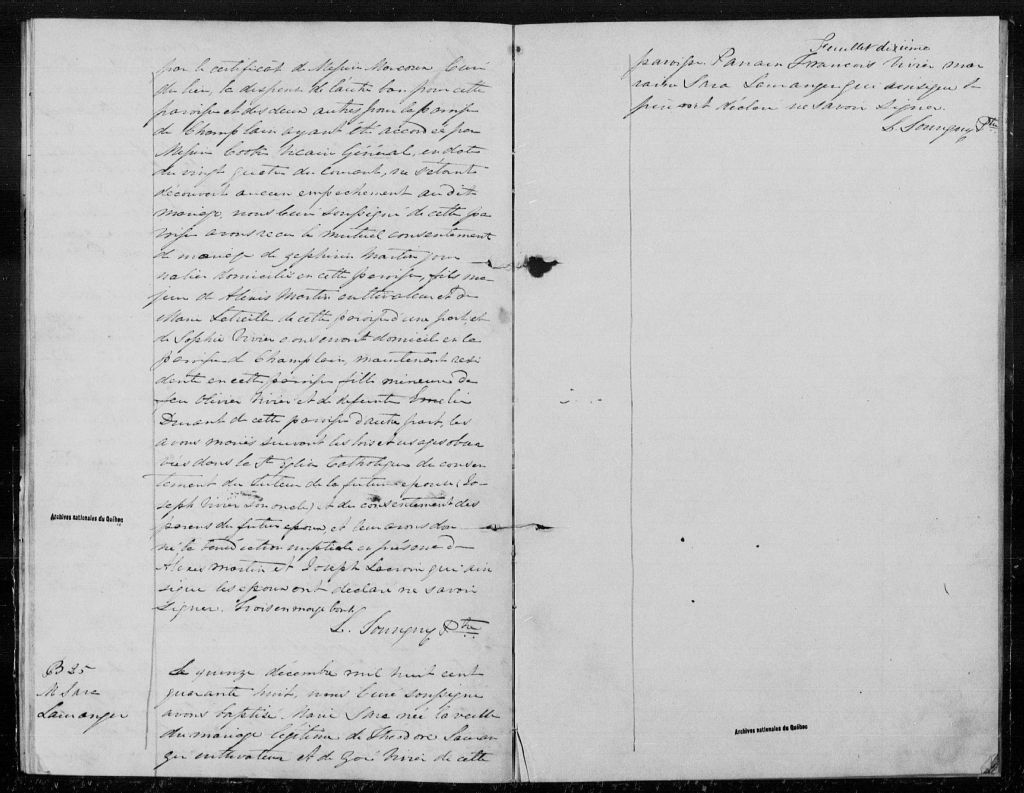 par le certificat de Messire Marcoux Curé
du lieu, la dispense de l'autre ban pour cette
paroisse et des deux autres pour la paroisse
de Champlain ayant été accordée par
Messire Cooke Vicaire Général, en date
du vingt quatre du courant, ne s'étant
découvert aucun empechement au dit
mariage, nous Curé soussigné de cette pa
roisse avons recu le mutuel consentement
de mariage de Zephirin Martin jour
nalier domicilié en cette paroisse, fils ma
jeur de Alexis Martin cultivateur et de
Marie de cette paroisse d'une part, et
de Sophie Vivier domicil en la
paroisse de Champlain, maintenant resi
dente en cette paroisse fille mineure de
feu Olivier Vivier et de defunte Emelie
Durant de cette paroisse d'autre part, les
avons mariés suivant les lois et usages obser
vés dans la Ste Eglise Catholique du consen
tement du tuteur de la future epouse (Jo
seph Vivier son oncle) et du consentement des
parens du futur epoux, et leur avons don
né la benediction nuptiale en présence de
Alexis Martin et Joseph Lacroix qui ain
si que les epoux ont déclaré ne savoir
signer. Trois en marge bons
L. Souvigny Ptre
Archives nationales du Québec
B 35
M Sara
Lamanger
Le quinze décembre mil huit cent
quarante huit, nous Curé soussigné
avons baptisé Marie Sara née la veille
du mariage légitime de Théodore Laman
ger cultivateur et de Zoé Vivier de cette
Feuillet dixième
paroisse Parrain Francois Vivier mar
raine Sara Lamanger qui ainsi que le
père ont déclaré ne savoir signer.
L. Souvigny Ptre
Archives nationales du Québec